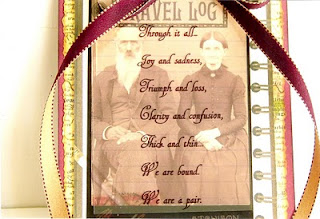 TRAVEL LOG
Through it all...
Joy and sadness,
Triumph and loss,
Clarity and confusion,
Thick and thin...
We are bound.
We are a pair.